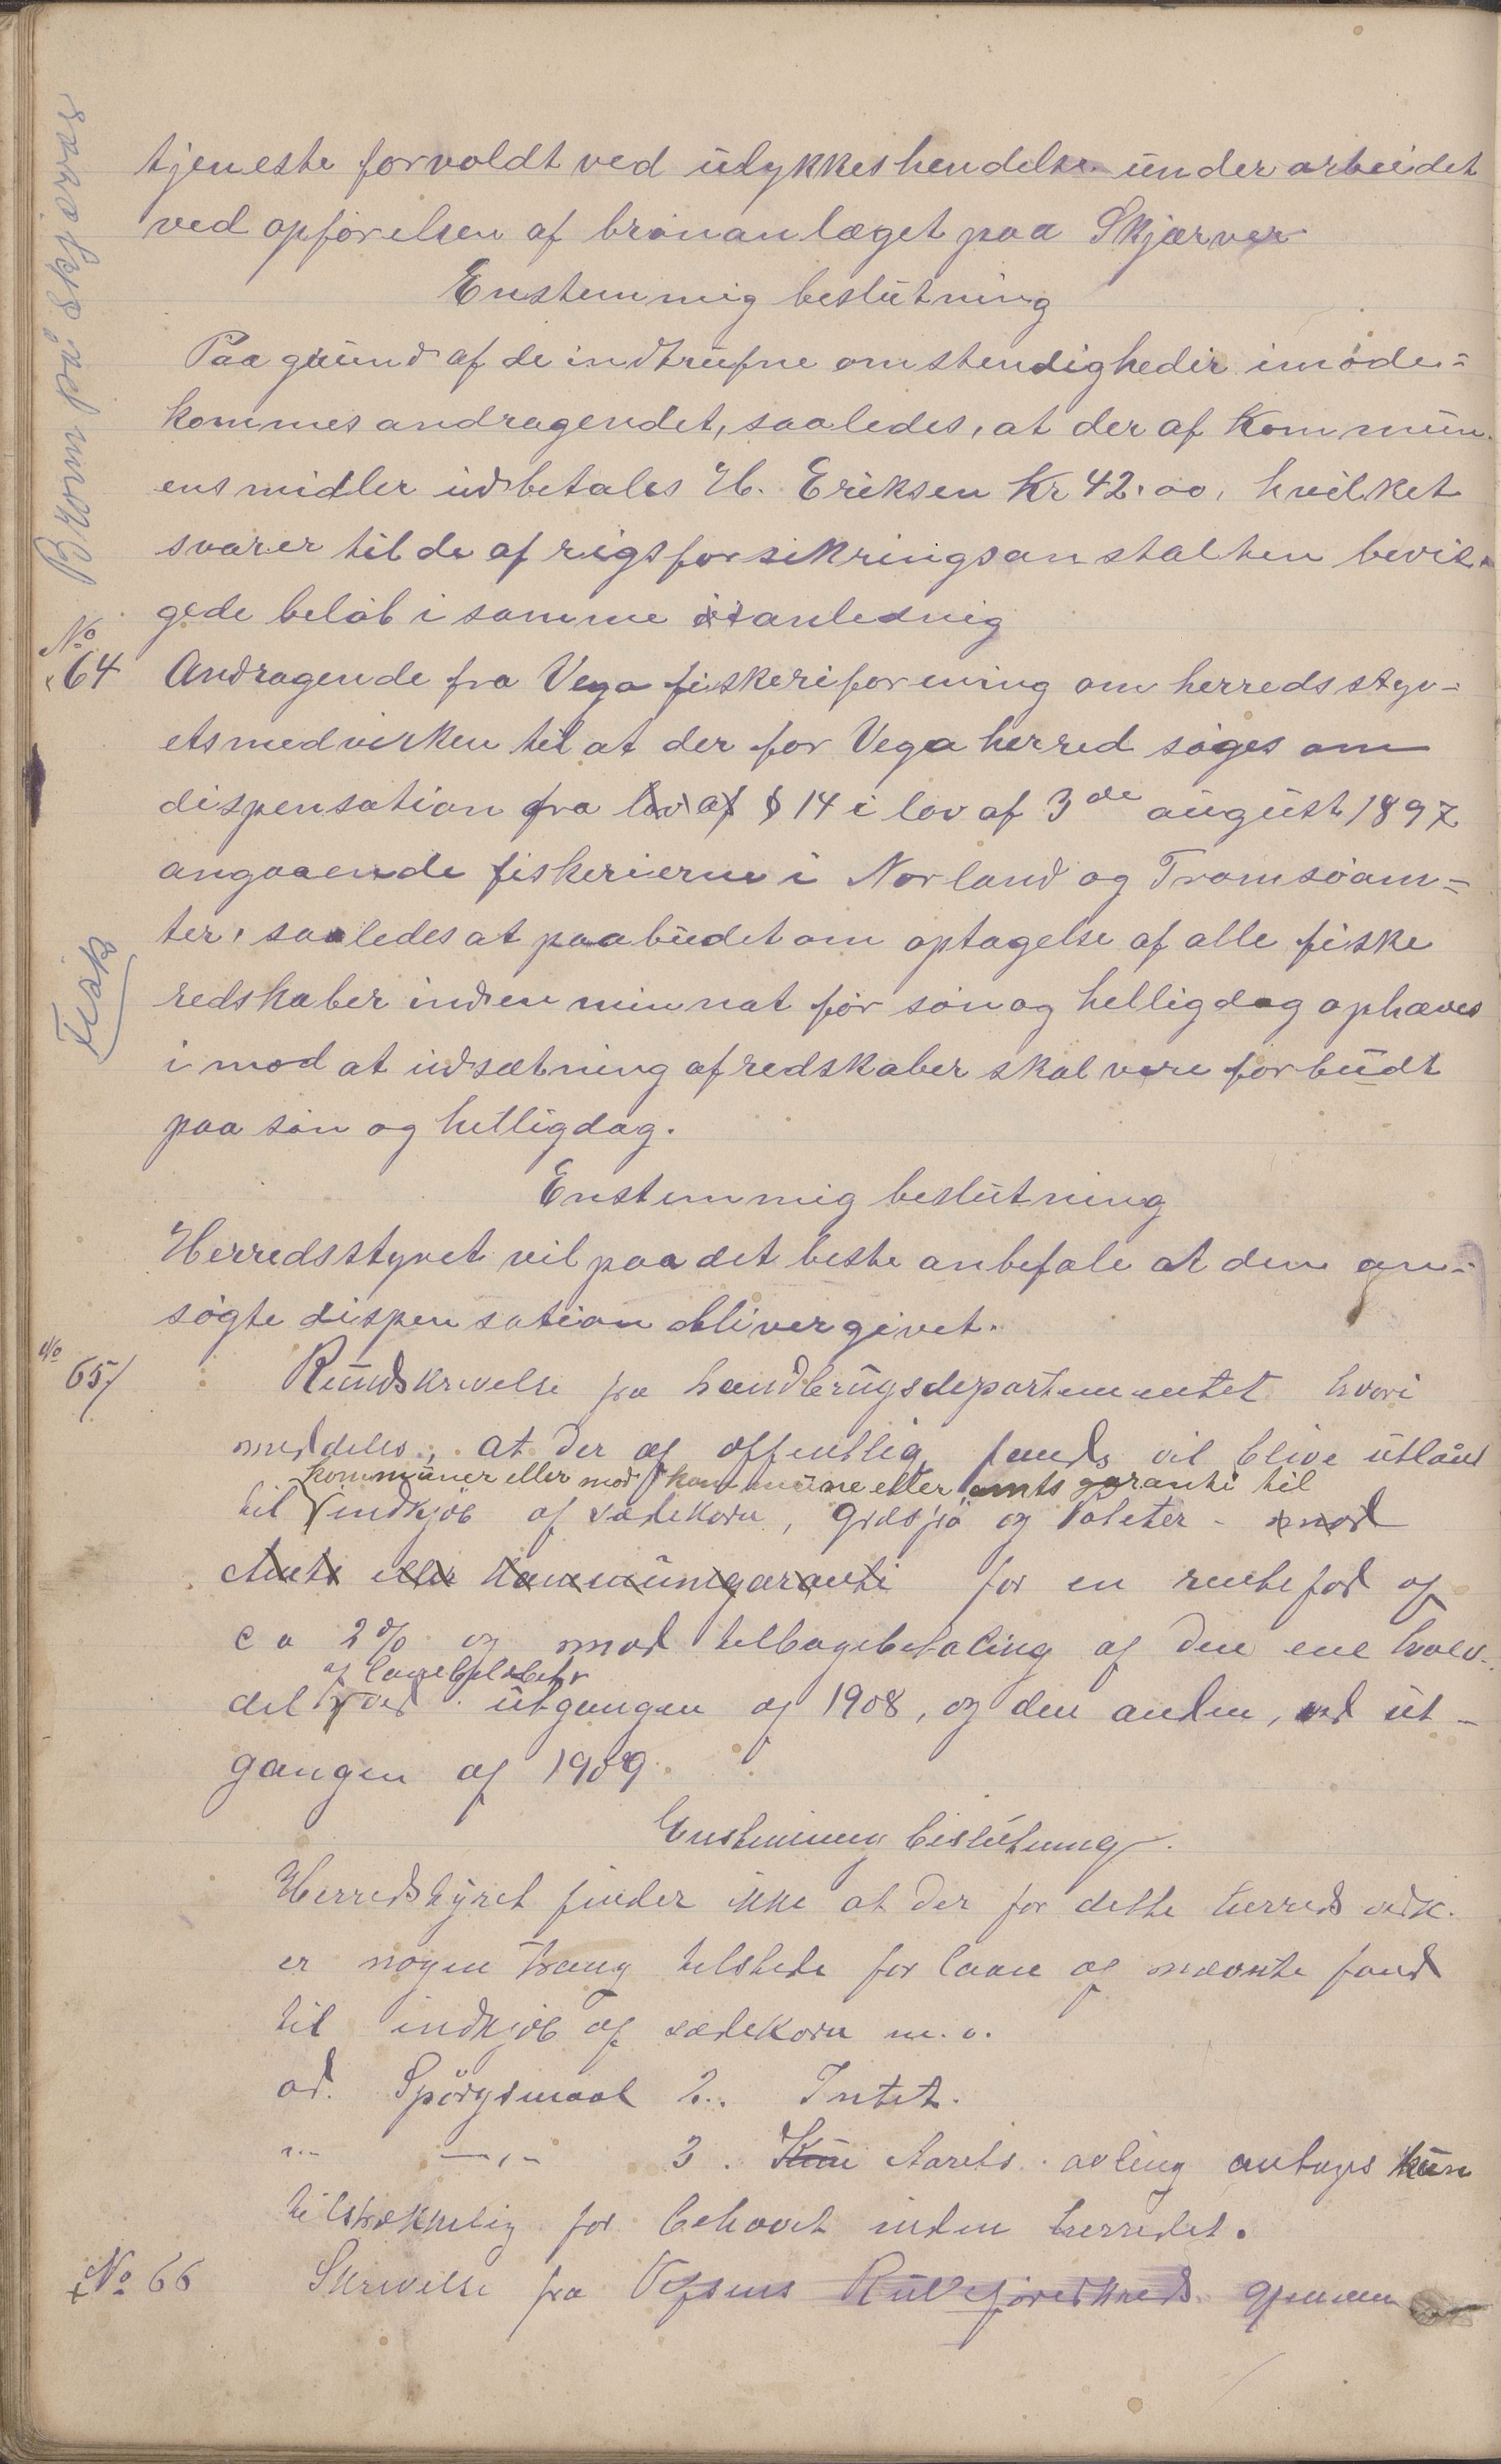 Brønn på Skjærvær
tjeneste forvoldt ved ulykkeshendelse under arbeidet
ved opførelsen af brønanlæget paa Skjærver
Enstemmig beslutning
Paa grund af de indtrufne omstendigheder imøde=
kommes andragendet, saaledes, at der af Kommun
ens midler udbetales H. Eriksen Kr 42.00, hvilket
svarer til de af rigsforsikringsanstalten bevil-
gede beløb i samme anledning
No
64 Andragende fra Vega fiskeriforening om herredsstyr=
ets medvirken til at der for Vega herred søges om
dispensation fra lov af § 14 i lov af 3de august 1897
angaaende fiskerierne i Norland og Tromsøam=
ter, saaledes at paabudet om optagelse af alle fiske
Fisk
redskaber inden minnat før søn og helligdag ophæves
i mod at udsætning af redskaber skal være forbudt
paa søn og helligdag.
Enstemmig beslutning
Herredsstyret vil paa det beste anbefale at den an=
søgte dispensation bliver givet.
No
65/ Rundskrivelse fra landbrugsdepartementet hvori
meddeles, at der af offentlig fonds vil blive utlånt
kommuner eller mod kommune eller amts garanti til
til indkjøb af sædekorn, græsfrø og Poteter - mod
Amts eller kommungaranti for en rentefod af
ca 2% og mod tilbagebetaling af den ene halv-
af laanebeløbet
del ved utgangen af 1908, og den anden, ved ut-
gangen af 1909
Enstemmig beslutning.
Herredstyret finder ikke at der for dette herreds vedk.
er nogen trang tilstede for laan af nævnte fond
til indkjøb af sædekorn m.v.
ad. Spörgsmaal 2. Intet.
"- -"- 3. Kun Aarets avling antages kun
tilstrækkelig for behovet inden herredet.
No 66 Skrivelse fra Vefsens